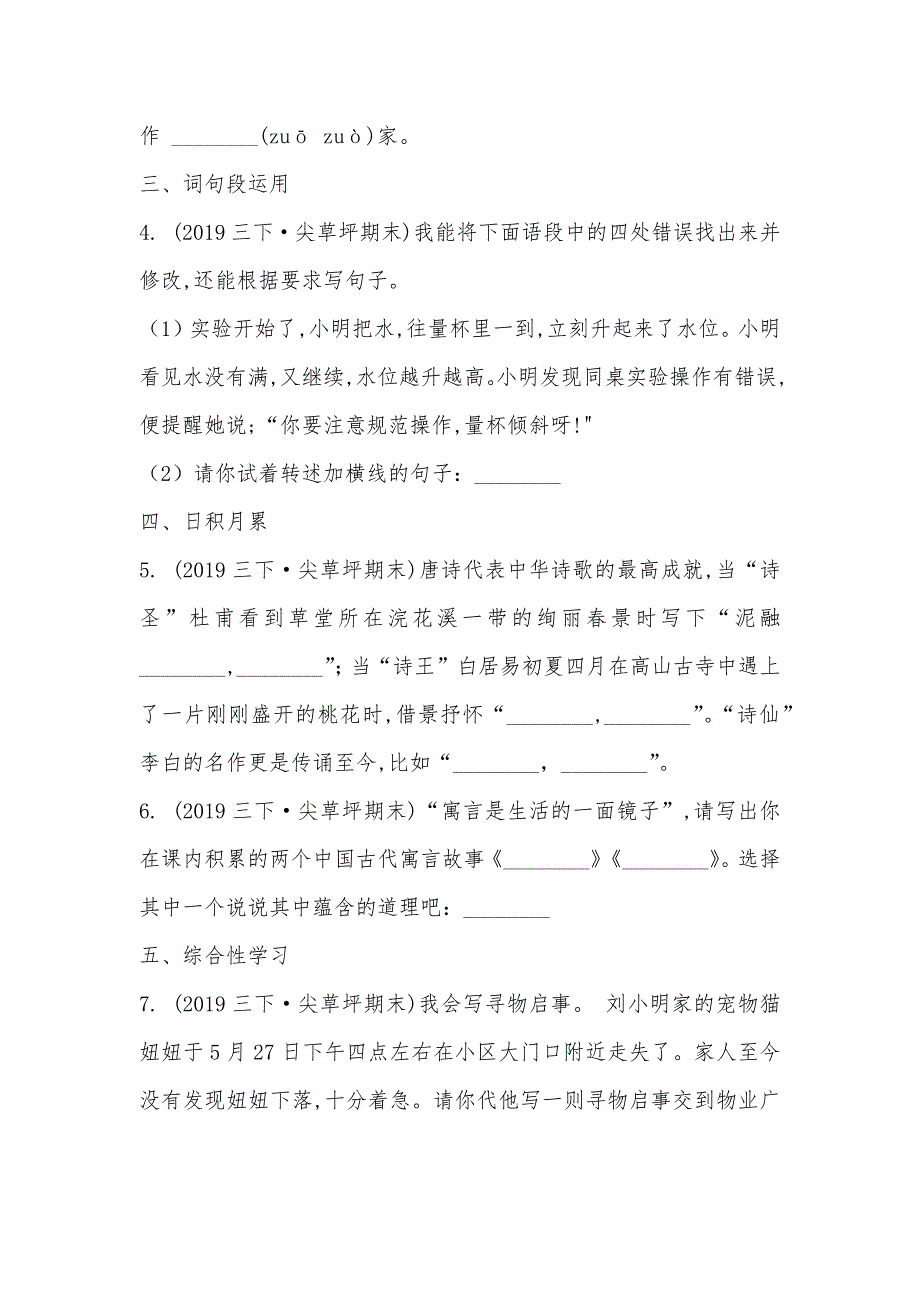 作 ________(zuō zuò)家。
三、词句段运用
4. (2019 三下·尖草坪期末)我能将下面语段中的四处错误找出来并
修改,还能根据要求写句子。
（1）实验开始了,小明把水,往量杯里一到,立刻升起来了水位。小明
看见水没有满,又继续,水位越升越高。小明发现同桌实验操作有错误,
便提醒她说;“你要注意规范操作,量杯倾斜呀!"
（2）请你试着转述加横线的句子：________
四、日积月累
5. (2019 三下·尖草坪期末)唐诗代表中华诗歌的最高成就,当“诗
圣”杜甫看到草堂所在浣花溪一带的绚丽春景时写下“泥融
________,________”;当“诗王”白居易初夏四月在高山古寺中遇上
了一片刚刚盛开的桃花时,借景抒怀“________,________”。“诗仙”
李白的名作更是传诵至今,比如“________，________”。
6. (2019 三下·尖草坪期末)“寓言是生活的一面镜子”,请写出你
在课内积累的两个中国古代寓言故事《________》《________》。选择
其中一个说说其中蕴含的道理吧：________
五、综合性学习
7. (2019 三下·尖草坪期末)我会写寻物启事。 刘小明家的宠物猫
妞妞于 5 月 27 日下午四点左右在小区大门口附近走失了。家人至今
没有发现妞妞下落,十分着急。请你代他写一则寻物启事交到物业广